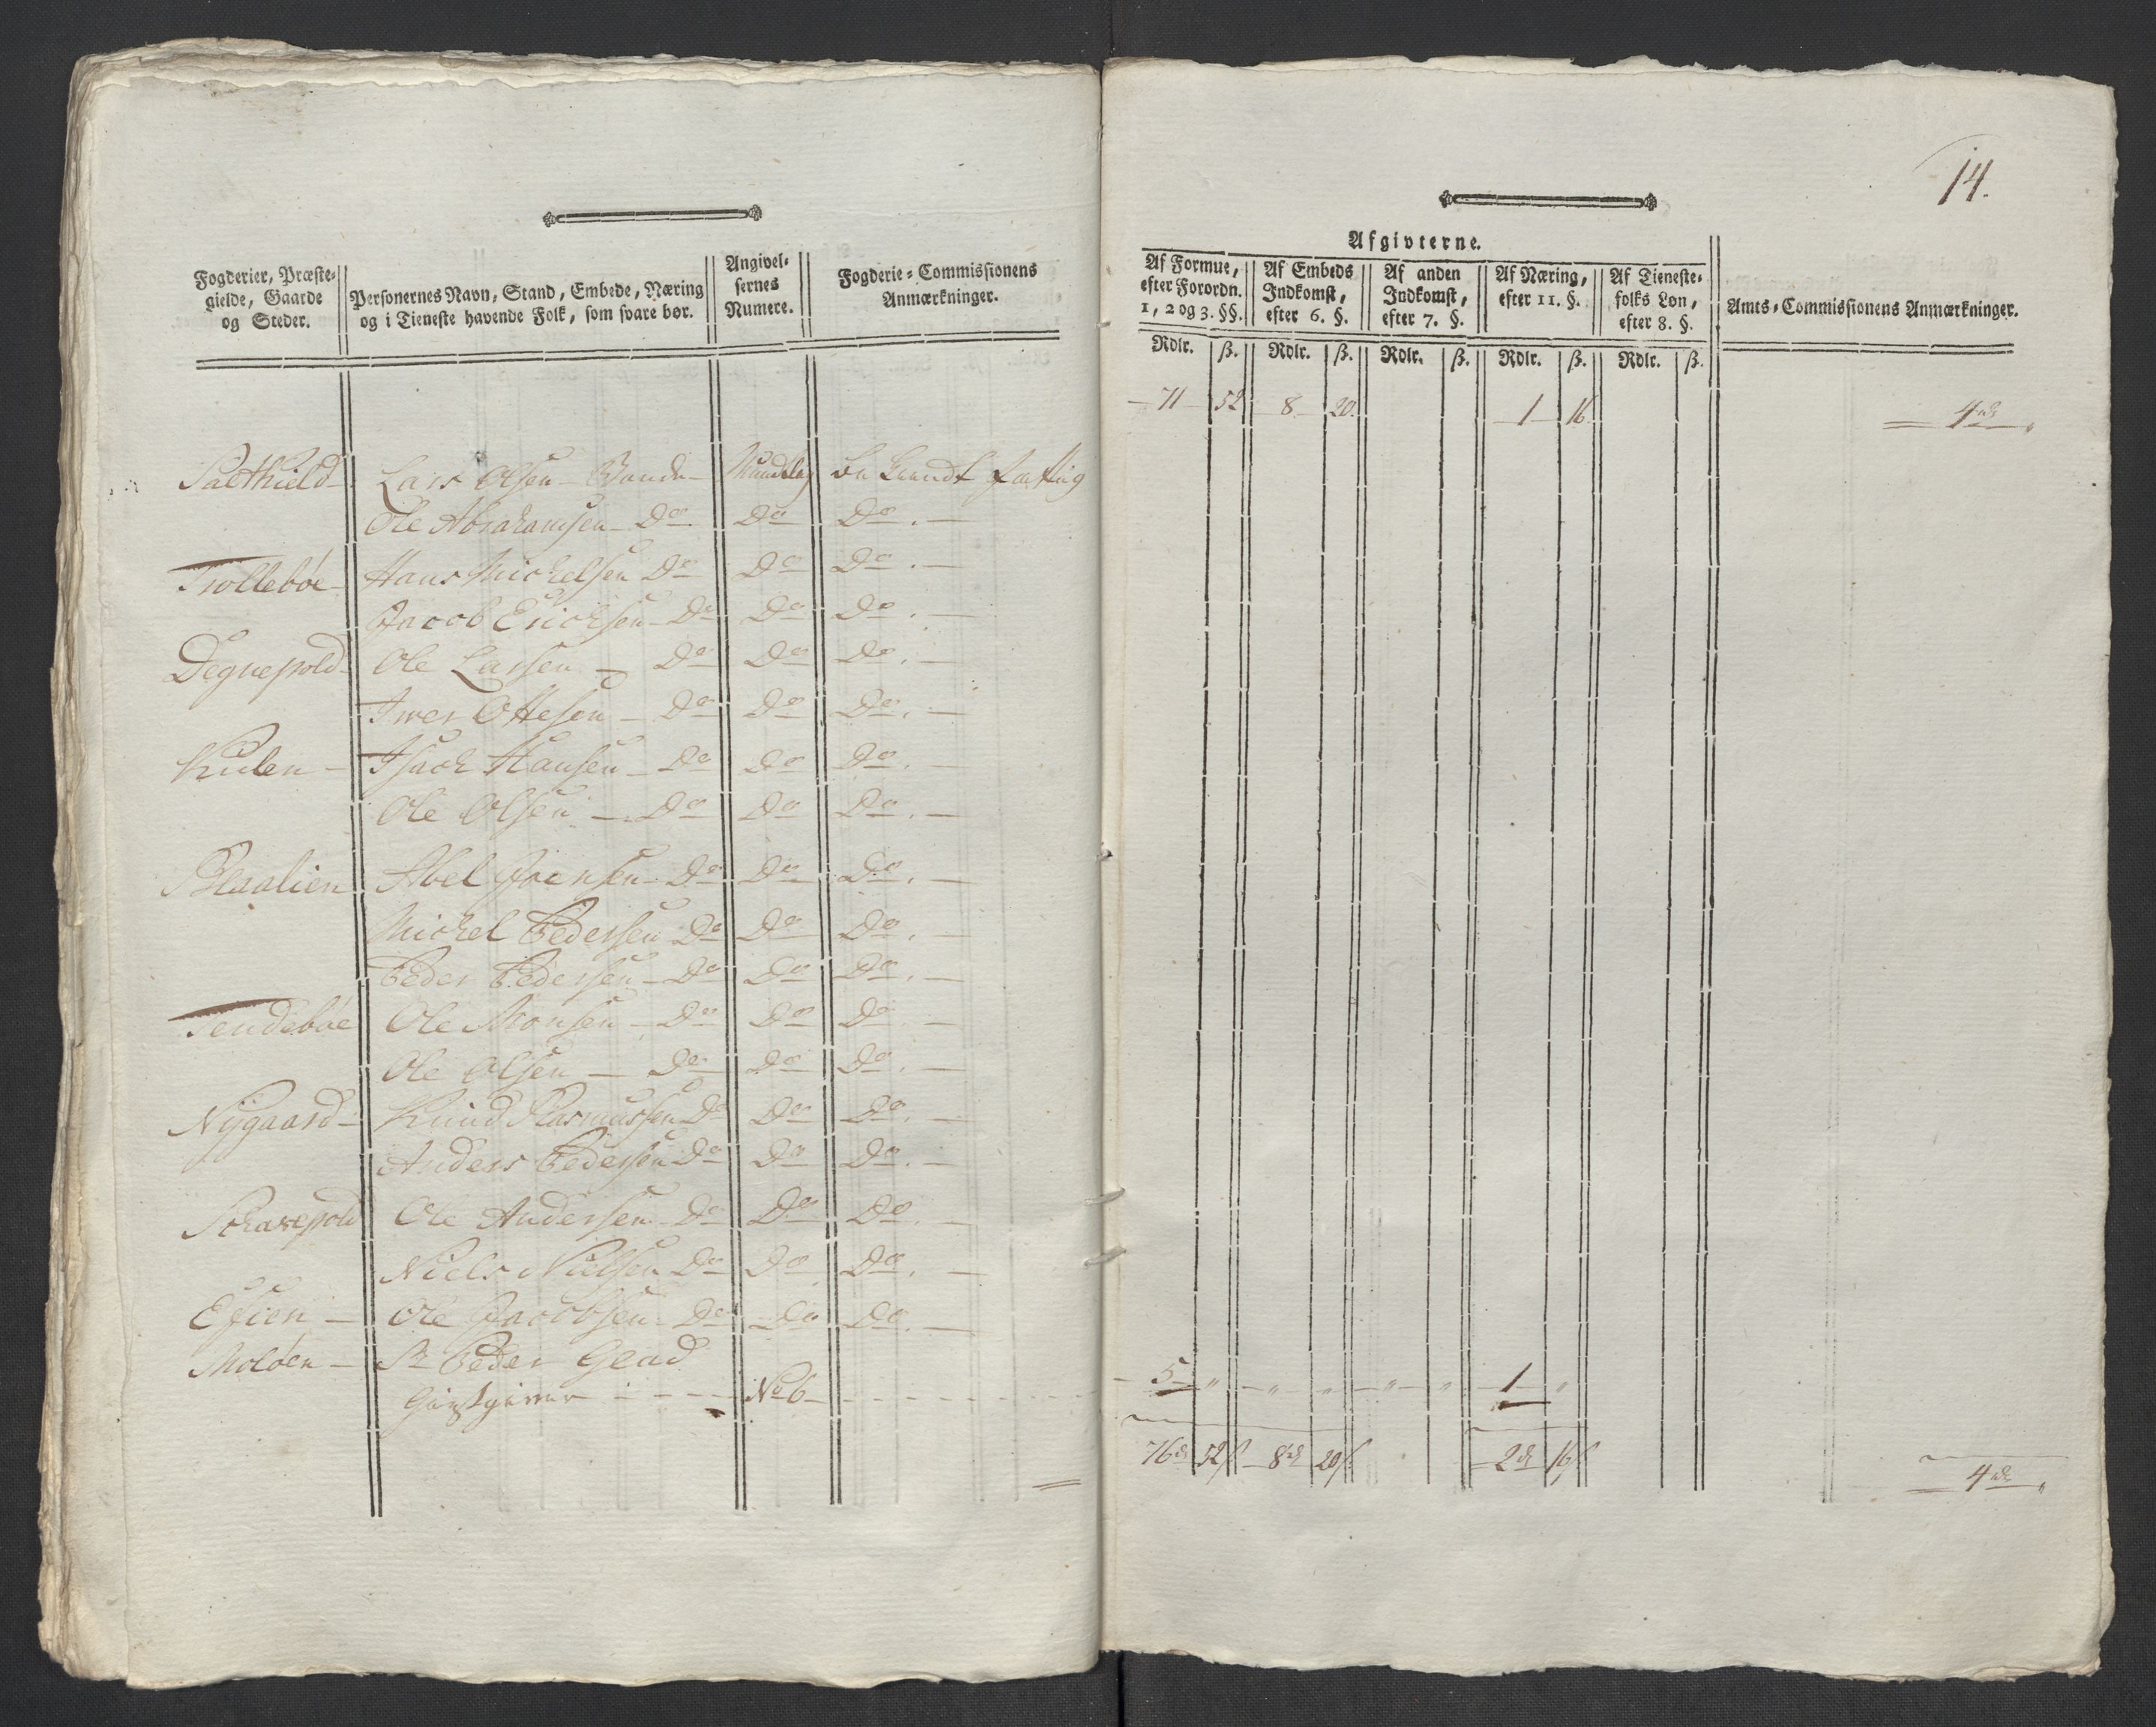 Fogderier, Præste-
gielde, Gaarde
og Steder.
Personernes Navn, Stand, Embede, Næring
og i Tieneste havende Folk, som svare bør.
Angivel-
sernes
Numere.
Fogderie-Commissionens
Anmærkninger.
Lars Olsen – Bonde – Mundtlig
Ole Abrahamsen – Do Do Do. –
Trollebøe – Hans Michelsen Do Do Do. –
Jacob Erichsen – Do Do Do. –
Degnepold – Ole Larsen – Do Do Do. –
Iver Ottesen – Do Do Do. –
Hulen – Isach Hansen – Do Do Do. –
Ole Olsen – Do Do Do. –
Blaalien Abel Joensen – Do Do Do. –
Michel Pedersen Do Do Do. –
Peder Pedersen – Do Do Do. –
Tendebøe Ole Monsen – Do Do Do –
Ole Olsen – Do Do Do. –
Nygaard – Knud Rasmussen Do Do Do. –
Anders Pedersen Do Do Do. –
Schavepold Ole Andersen – Do Do Do. –
Niels Nielsen Do Do Do. –
Ole Jacobsen – Do Do Do. –
Moløen – Sr Peder Glad
Giæstgiver – – – – No 6 –
14.
Afgivterne.
Af Formue,
efter Forordn.
1, 2 og 3. §§.
Af Embeds
Indkomst,
efter 6. §.
Af anden
Indkomst,
efter 7. §.
Af Næring,
efter 11. §.
Af Tieneste-
folks Løn,
efter 8. §.
Amts-Commissionens Anmærkninger.
Rdlr. ß. Rdlr. ß. Rdlr. ß. Rdlr. ß. Rdlr. ß.
71 52 8 20 1 16 4 rd „
5 „ „ „ „ „ 1 „
76 rd 52 ß 8 rd 20 ß 2 rd 16 ß 4 rd „